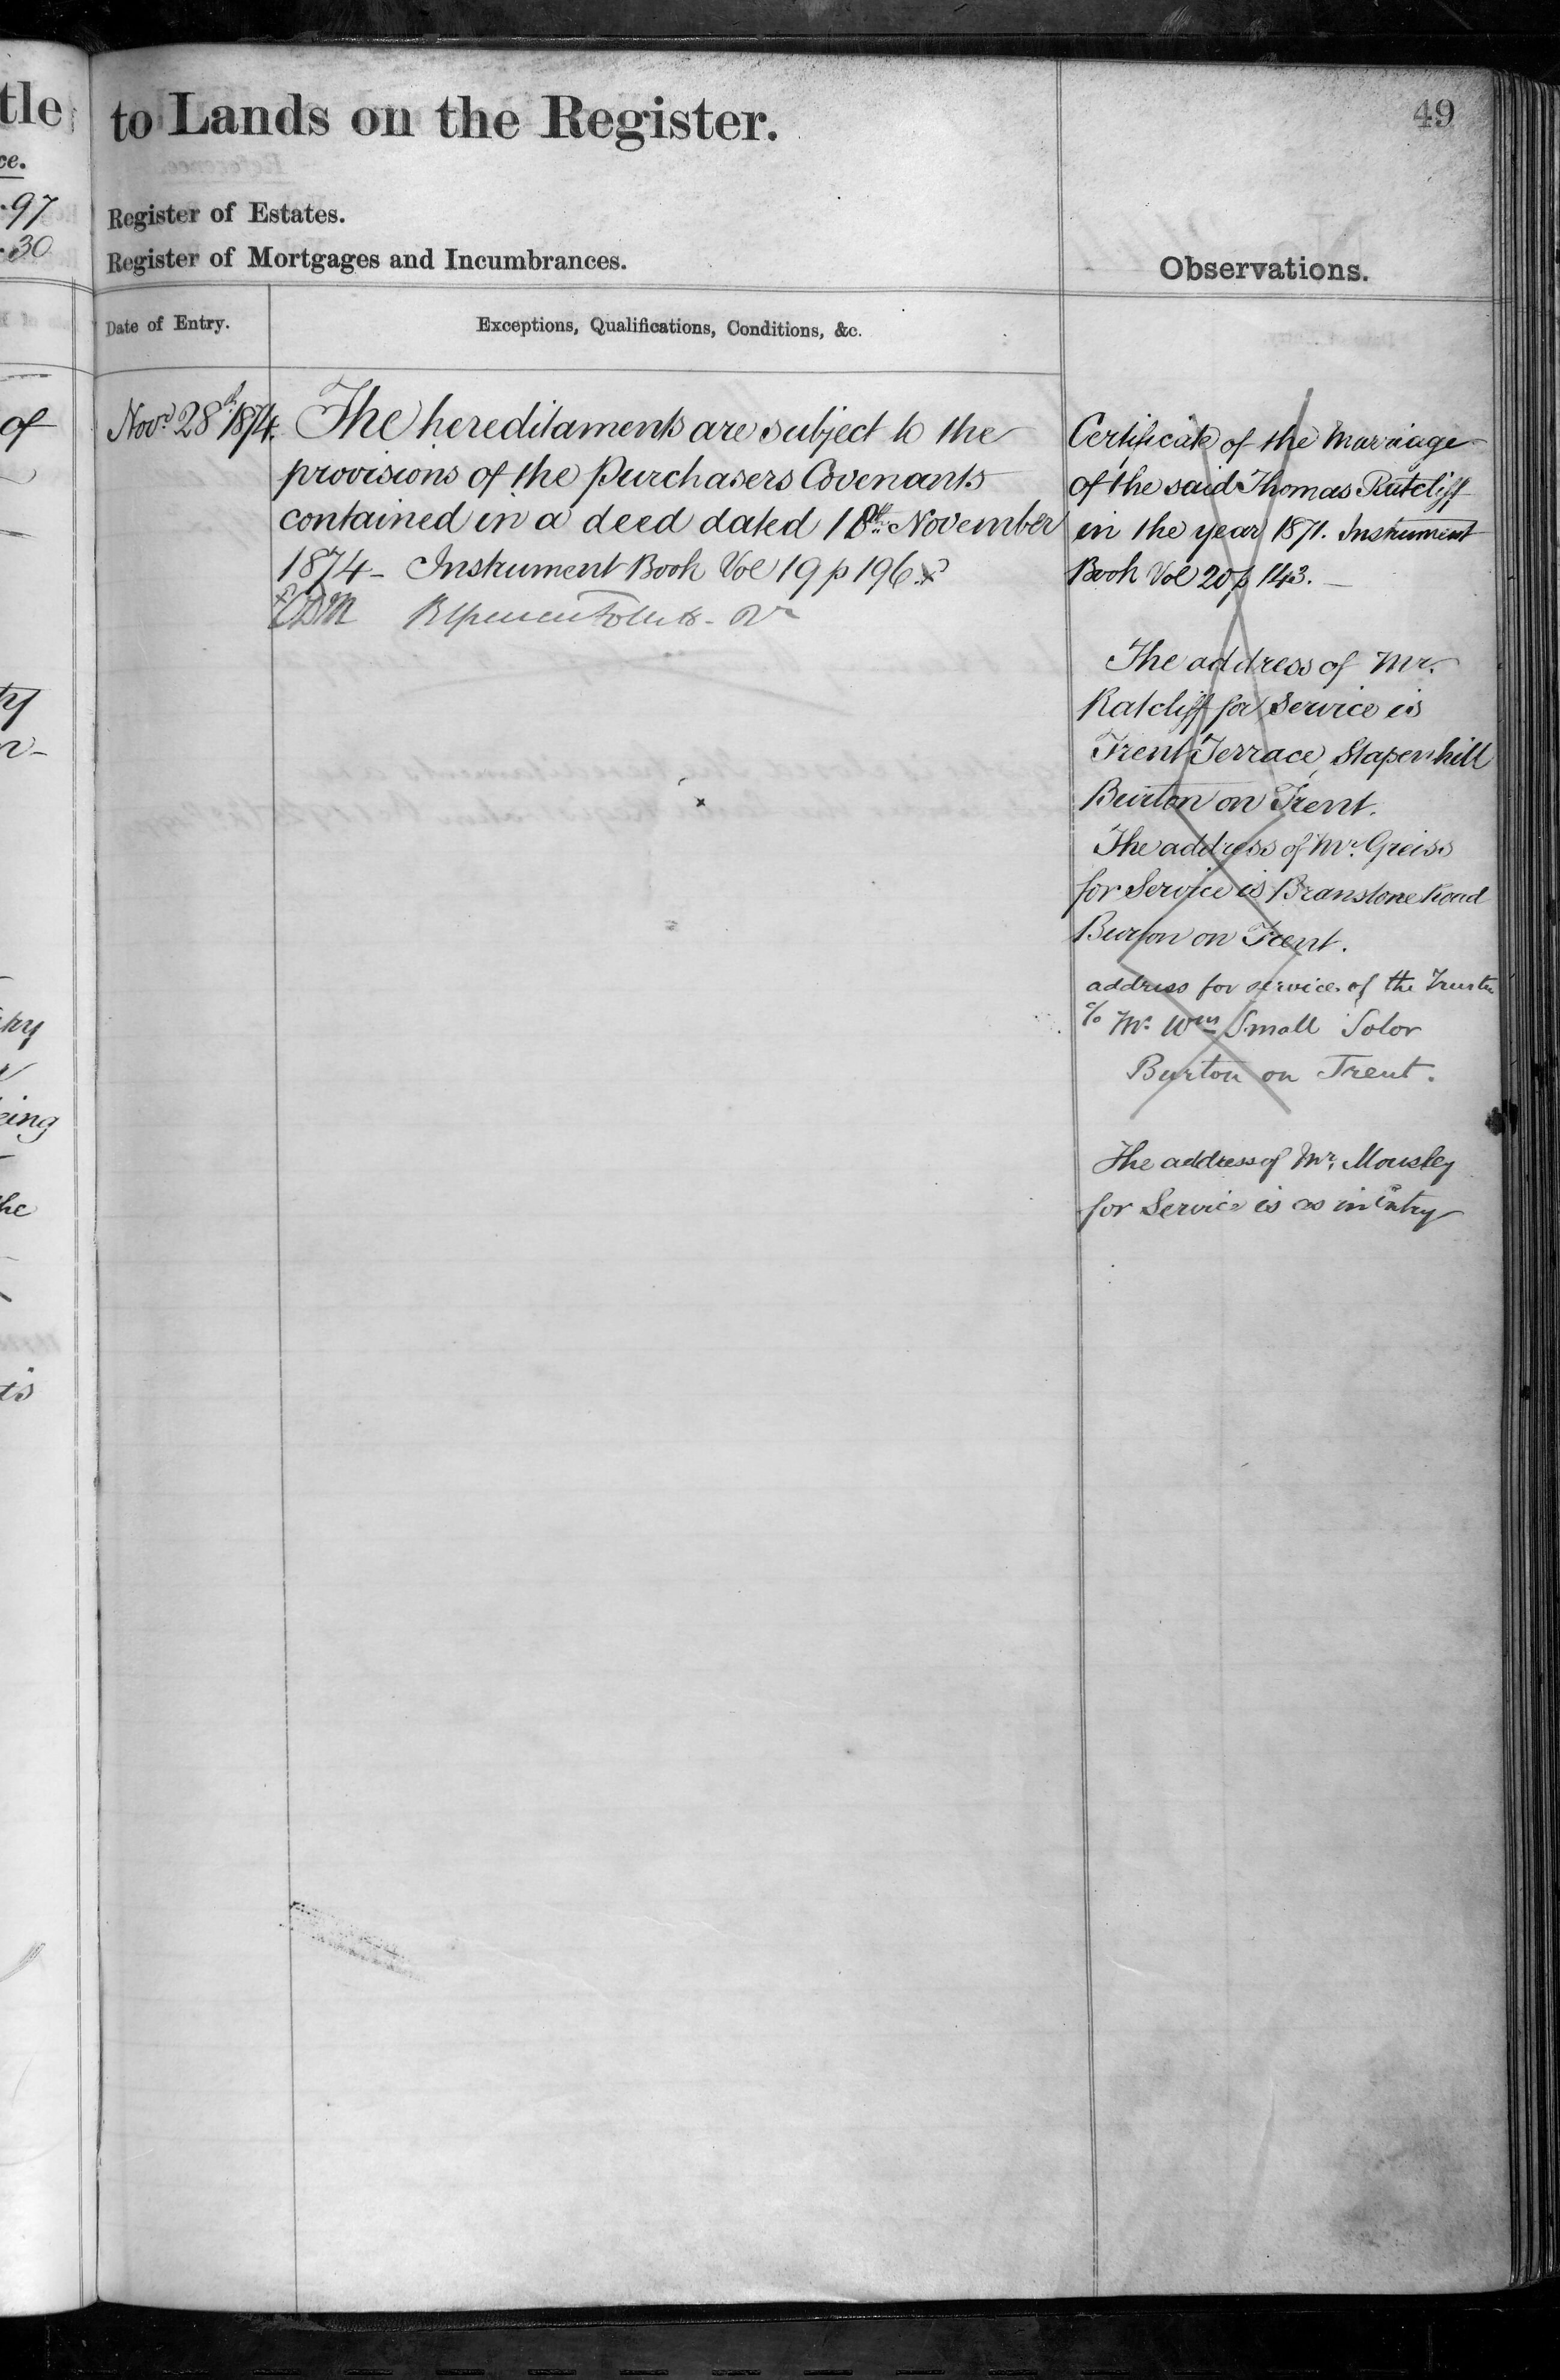 tle
ce.
97
30
of
ty
n-
try
eing
he
ts
to Lands on the Register.
49
Register of Estates.
Register of Mortgages and Incumbrances.
Observations.
Date of Entry.
Exceptions, Qualifications, Conditions, &c.
Novr 28th 1874.
The hereditaments are subject to the
provisions of the Purchasers Covenants
contained in a deed dated 18th November
1874 - Instrument Book Vol 19 p 196. x
Certificate of the Marriage
of the said Thomas Ratcliff
in the year 1871. Instrument
Book Vol 20 p 143. —
The address of Mr.
Ratcliff for Service is
Trent Terrace, Stapenhill
Burton on Trent.
The address of Mr. Greiss
for Service is Branstone Road
Burton on Trent.
address for service of the Trustee
c/o Mr. Wm Small Solor
Burton on Trent.
The address of Mr. Mousley
for Service is as in Entry